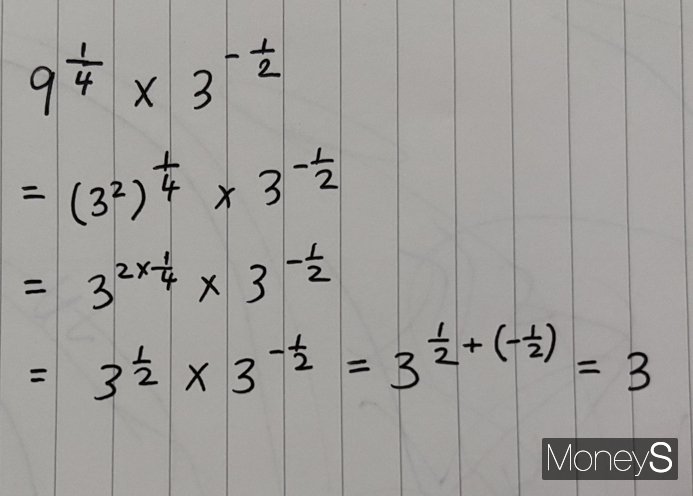 9^{\frac{1}{4}} × 3^{-\frac{1}{2}}
= (3^2)^{\frac{1}{4}} × 3^{-\frac{1}{2}}
= 3^{2×\frac{1}{4}} × 3^{-\frac{1}{2}}
= 3^{\frac{1}{2}} × 3^{-\frac{1}{2}} = 3^{\frac{1}{2}+(-\frac{1}{2})} = 3
MoneyS